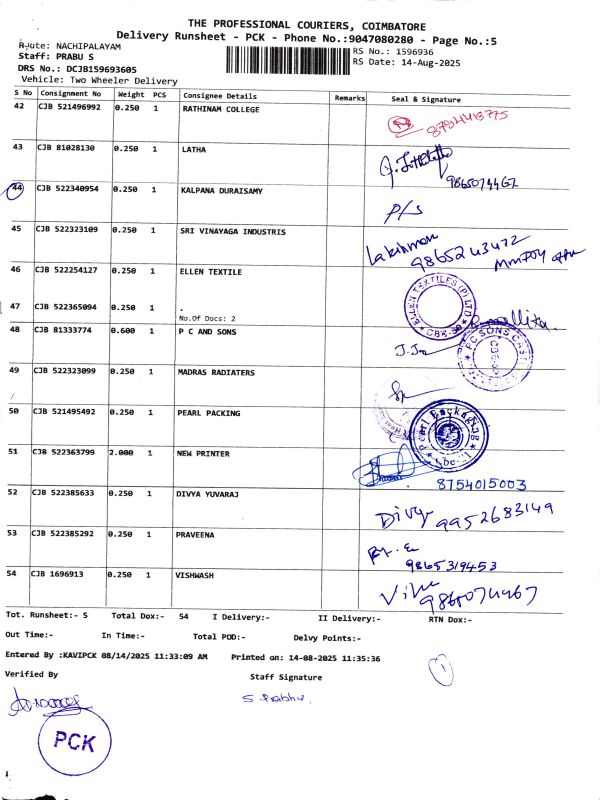 THE PROFESSIONAL COURIERS, COIMBATORE
Delivery Runsheet - PCK - Phone No.:9047080280 - Page No.:5
Route: NACHIPALAYAM
RS No.: 1596936
Staff: PRABU S
RS Date: 14-Aug-2025
DRS No.: DCJB159693605
Vehicle: Two Wheeler Delivery
S No Consignment No Weight PCS Consignee Details Remarks Seal & Signature
42 CJB 521496992 0.250 1 RATHINAM COLLEGE
43 CJB 81028130 0.250 1 LATHA
44 CJB 522340954 0.250 1 KALPANA DURAISAMY
P/S
45 CJB 522323109 0.250 1 SRI VINAYAGA INDUSTRIS
9865243472
46 CJB 522254127 0.250 1 ELLEN TEXTILE
ELLEN TEXTILES (P) LTD
47 CJB 522365094 0.250 1 .
No.Of Docs: 2
48 CJB 81333774 0.600 1 P C AND SONS
49 CJB 522323099 0.250 1 MADRAS RADIATERS
50 CJB 521495492 0.250 1 PEARL PACKING
Pearl Packaging
51 CJB 522363799 2.000 1 NEW PRINTER
8754015003
52 CJB 522385633 0.250 1 DIVYA YUVARAJ
Divya
9952683149
53 CJB 522385292 0.250 1 PRAVEENA
9865319453
54 CJB 1696913 0.250 1 VISHWASH
Tot. Runsheet:- 5 Total Dox:- 54 I Delivery:- II Delivery:- RTN Dox:-
Out Time:- In Time:- Total POD:- Delvy Points:-
Entered By :KAVIPCK 08/14/2025 11:33:09 AM Printed on: 14-08-2025 11:35:36
1
Verified By Staff Signature
S. Prabhu
PCK